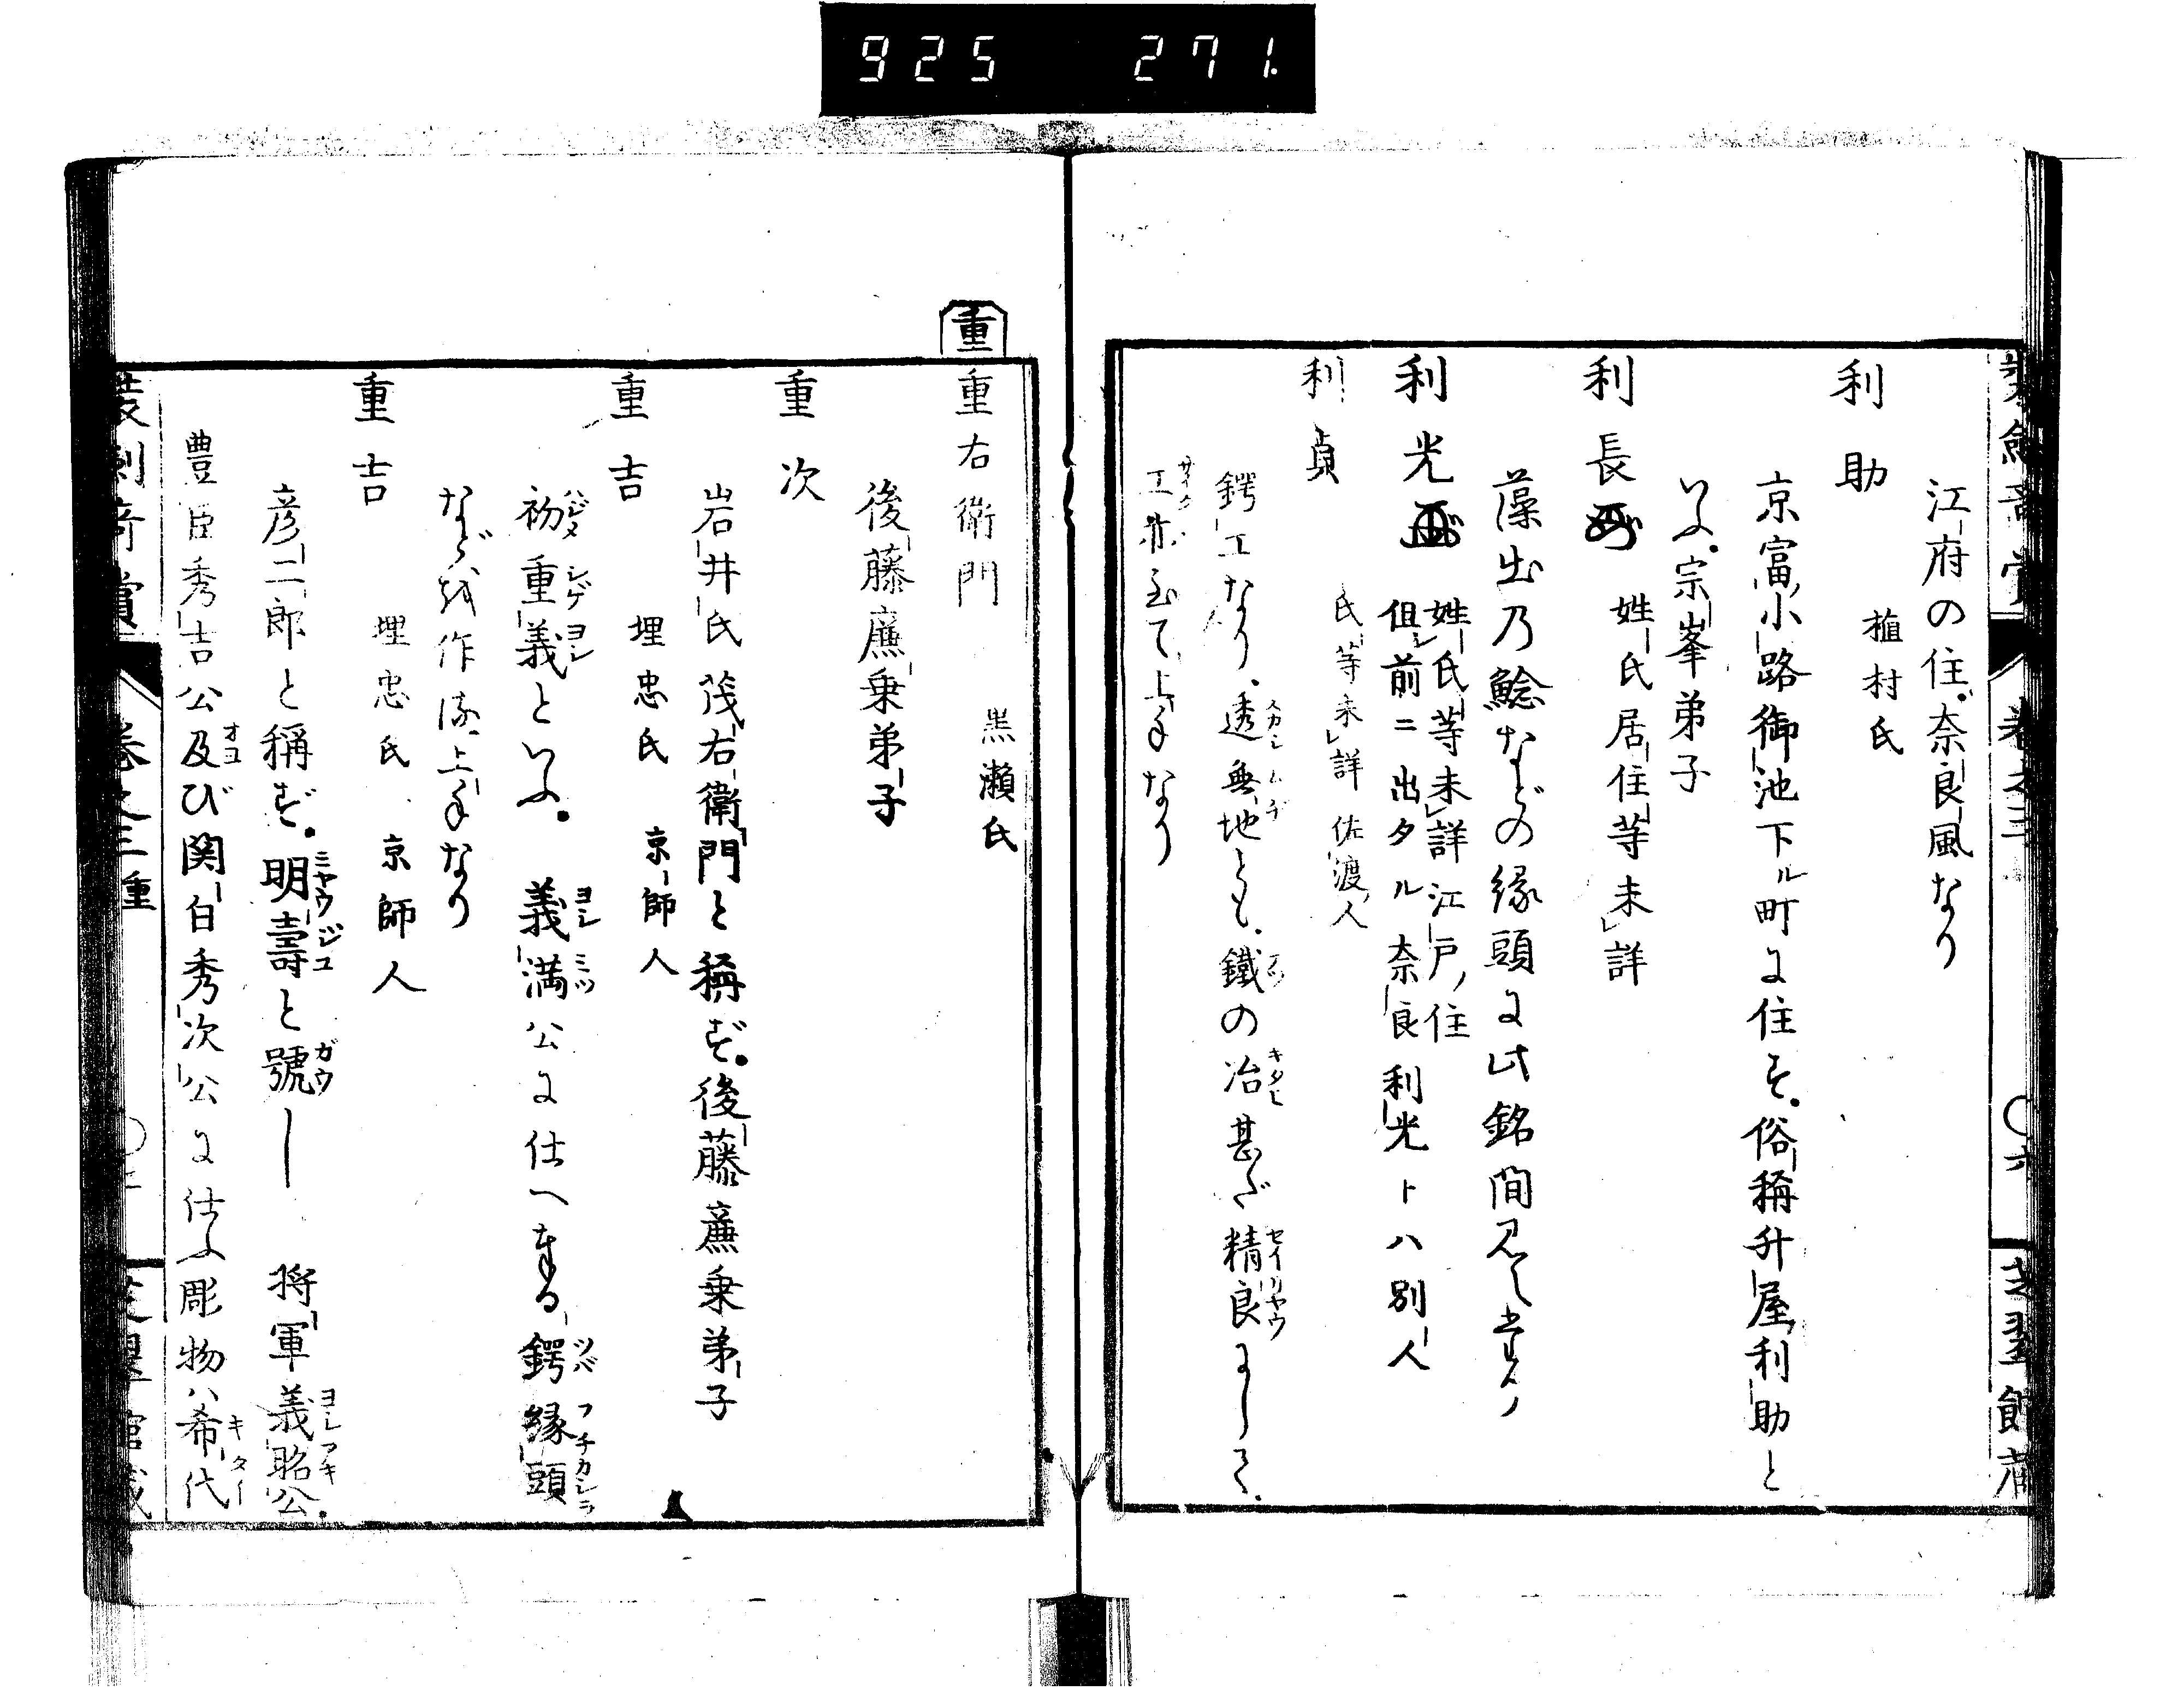 925 271.
江府の住奈良風なり
利助 植村氏
京富小路御池下ル町に住す俗称升屋利助と
いふ宗峯弟子
利長 姓氏居住等未詳
藻出乃鯰などの縁頭に此銘間見え
利光 姓氏等未詳江戸ノ住
但前ニ出タル奈良利光トハ別人
利貞 氏等未詳 佐渡人
鍔工なり、透無地とも、鐵の冶甚だ精良にして、
工亦至て上手なり
重
重右衛門 黒瀬氏
後藤廉乗弟子
重次
岩井氏茂右衛門と稱ず後藤廉乗弟子
重吉 埋忠氏 京師人
初重義といふ 義満公に仕へ奉る鍔縁頭
などを作る上手なり
重吉 埋忠氏 京師人
彦二郎と稱ず明壽と號し 将軍義昭公
豊臣秀吉公及び関白秀次公に仕ふ彫物ハ希代
装劍奇賞 巻之三 重